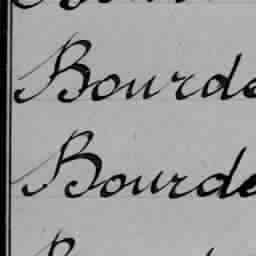 Bourde
Bourde